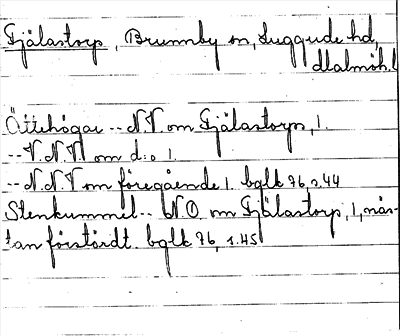 Fjälastorp, Brunnby sn, Luggude hd,
Malmöh. l
Ättehögar -- N.V. om Fjälastorp, 1.
-- V.N.V. om d:o 1.
-- N.N.V om föregående 1. bglk 76, s. 44
Stenkummel -- N.O. om Fjälastorp, 1, näs-
tan förstördt. bglk 76, s. 45